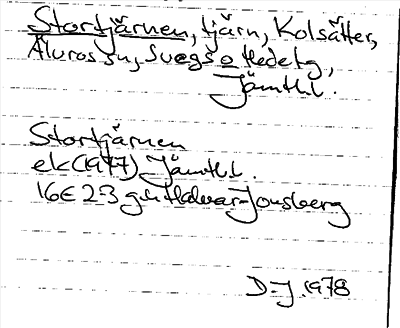 Stortjärnen, tjärn, Kolsätter,
Älvros sn, Svegs o Hedetg,
Jämtl l.
Stortjärnen
ek (1977) Jämtl l.
16E 2-3 g-h Halvar Jonsberg
D-J. 1978